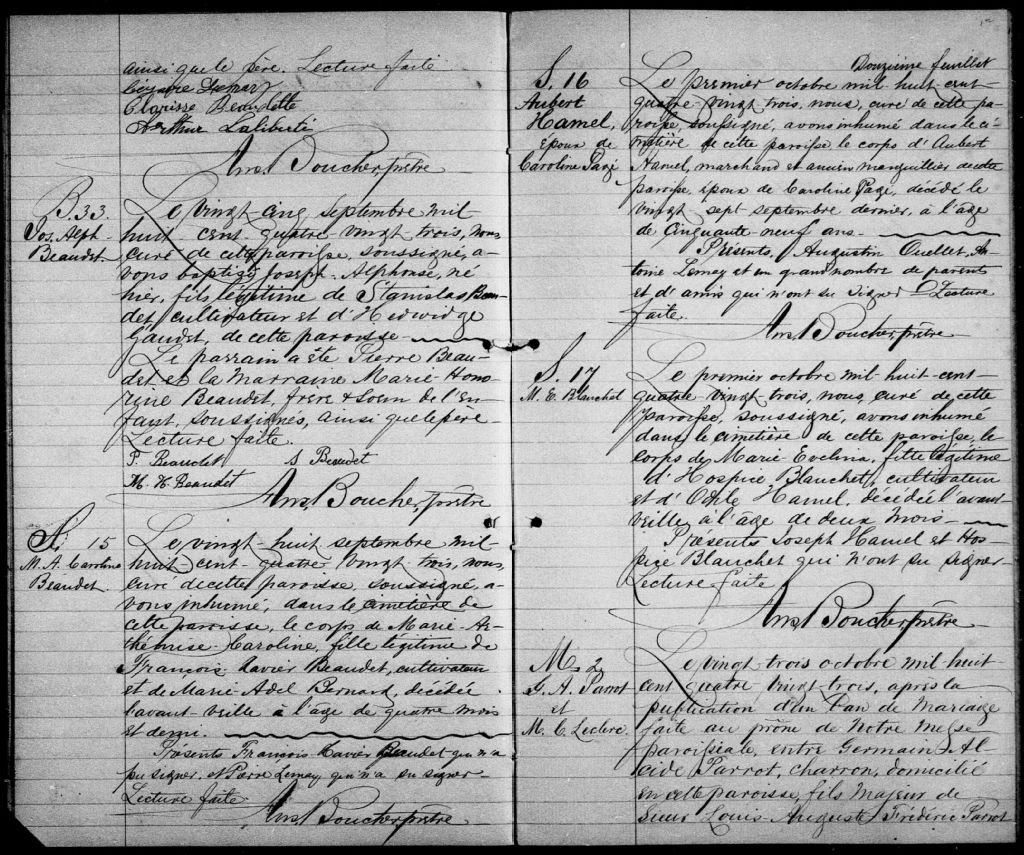 ainsi que le père. Lecture faite
Lemay
Clarisse Beaudette
Arthur Laliberté
Ams. Boucher, ptre
B. 33.
Jos. Alph.
Beaudet
Le vingt-cinq septembre mil
huit-cent-quatre vingt trois, nous
curé de cette paroisse, soussigné, a-
vons baptisé Joseph-Alphonse, né
hier, fils légitime de Stanislas Beau-
det, cultivateur et d'Hedwidge
Gaudet, de cette paroisse
Le parrain a été Pierre Beau-
det et la marraine Marie-Hono-
rine Beaudet, frère & soeur de l'en-
fant, soussignés, ainsi que le père
Lecture faite.
P. Beaudet S Beaudet
M. H. Beaudet
Ams. Boucher, ptre
S. 15
M. A. Caroline
Beaudet.
Le vingt-huit septembre mil
huit-cent-quatre vingt trois, nous,
curé de cette paroisse, soussigné, a-
vons inhumé, dans le cimetière de
cette paroisse, le corps de Marie-Ar-
thémise-Caroline, fille légitime de
François-Xavier Beaudet, cultivateur
et de Marie-Adel Bernard, décédée
l'avant-veille à l'âge de quatre mois
et demi.
Présents François Xavier Beaudet qui n'a
pu signer, et Pierre Lemay qui n'a su signer
Lecture faite
Ams. Boucher ptre
Douzième feuillet
S. 16
Aubert
Hamel,
époux de
Caroline Pagé
Le premier octobre mil-huit-cent
quatre-vingt trois, nous, curé de cette pa-
roisse, soussigné, avons inhumé dans le ci-
metière de cette paroisse le corps d'Aubert
Hamel, marchand et ancien marguillier de cette
paroisse, époux de Caroline Pagé, décédé le
vingt sept septembre dernier, à l'âge
de cinquante neuf ans.
Présents, Augustin Ouellet, An-
toine Lemay et un grand nombre de parents
et d'amis qui n'ont su signer Lecture
faite.
Ams. Boucher ptre
S. 17
M. E. Blanchet
Le premier octobre mil-huit-cent
quatre vingt-trois, nous, curé de cette
paroisse, soussigné, avons inhumé
dans le cimetière de cette paroisse, le
corps de Marie Evelina, fille légitime
d'Hospice Blanchet, cultivateur
et d'Odile Hamel, décédée l'avant
veille, à l'âge de deux mois-
Présents Joseph Hamel et Hos-
pice Blanchet qui n'ont su signer
Lecture faite
Ams. Boucher ptre
M. 2
G. A. Parrot
et
M. C. Leclerc.
Le vingt trois octobre mil huit
cent quatre vingt-trois, après la
publication d'un ban de mariage
faite au prône de Notre Messe
paroissiale, entre Germain Al-
cide Parrot, charron, domicilié
en cette paroisse, fils majeur de
Sieur Louis-Auguste Frédéric Parrot